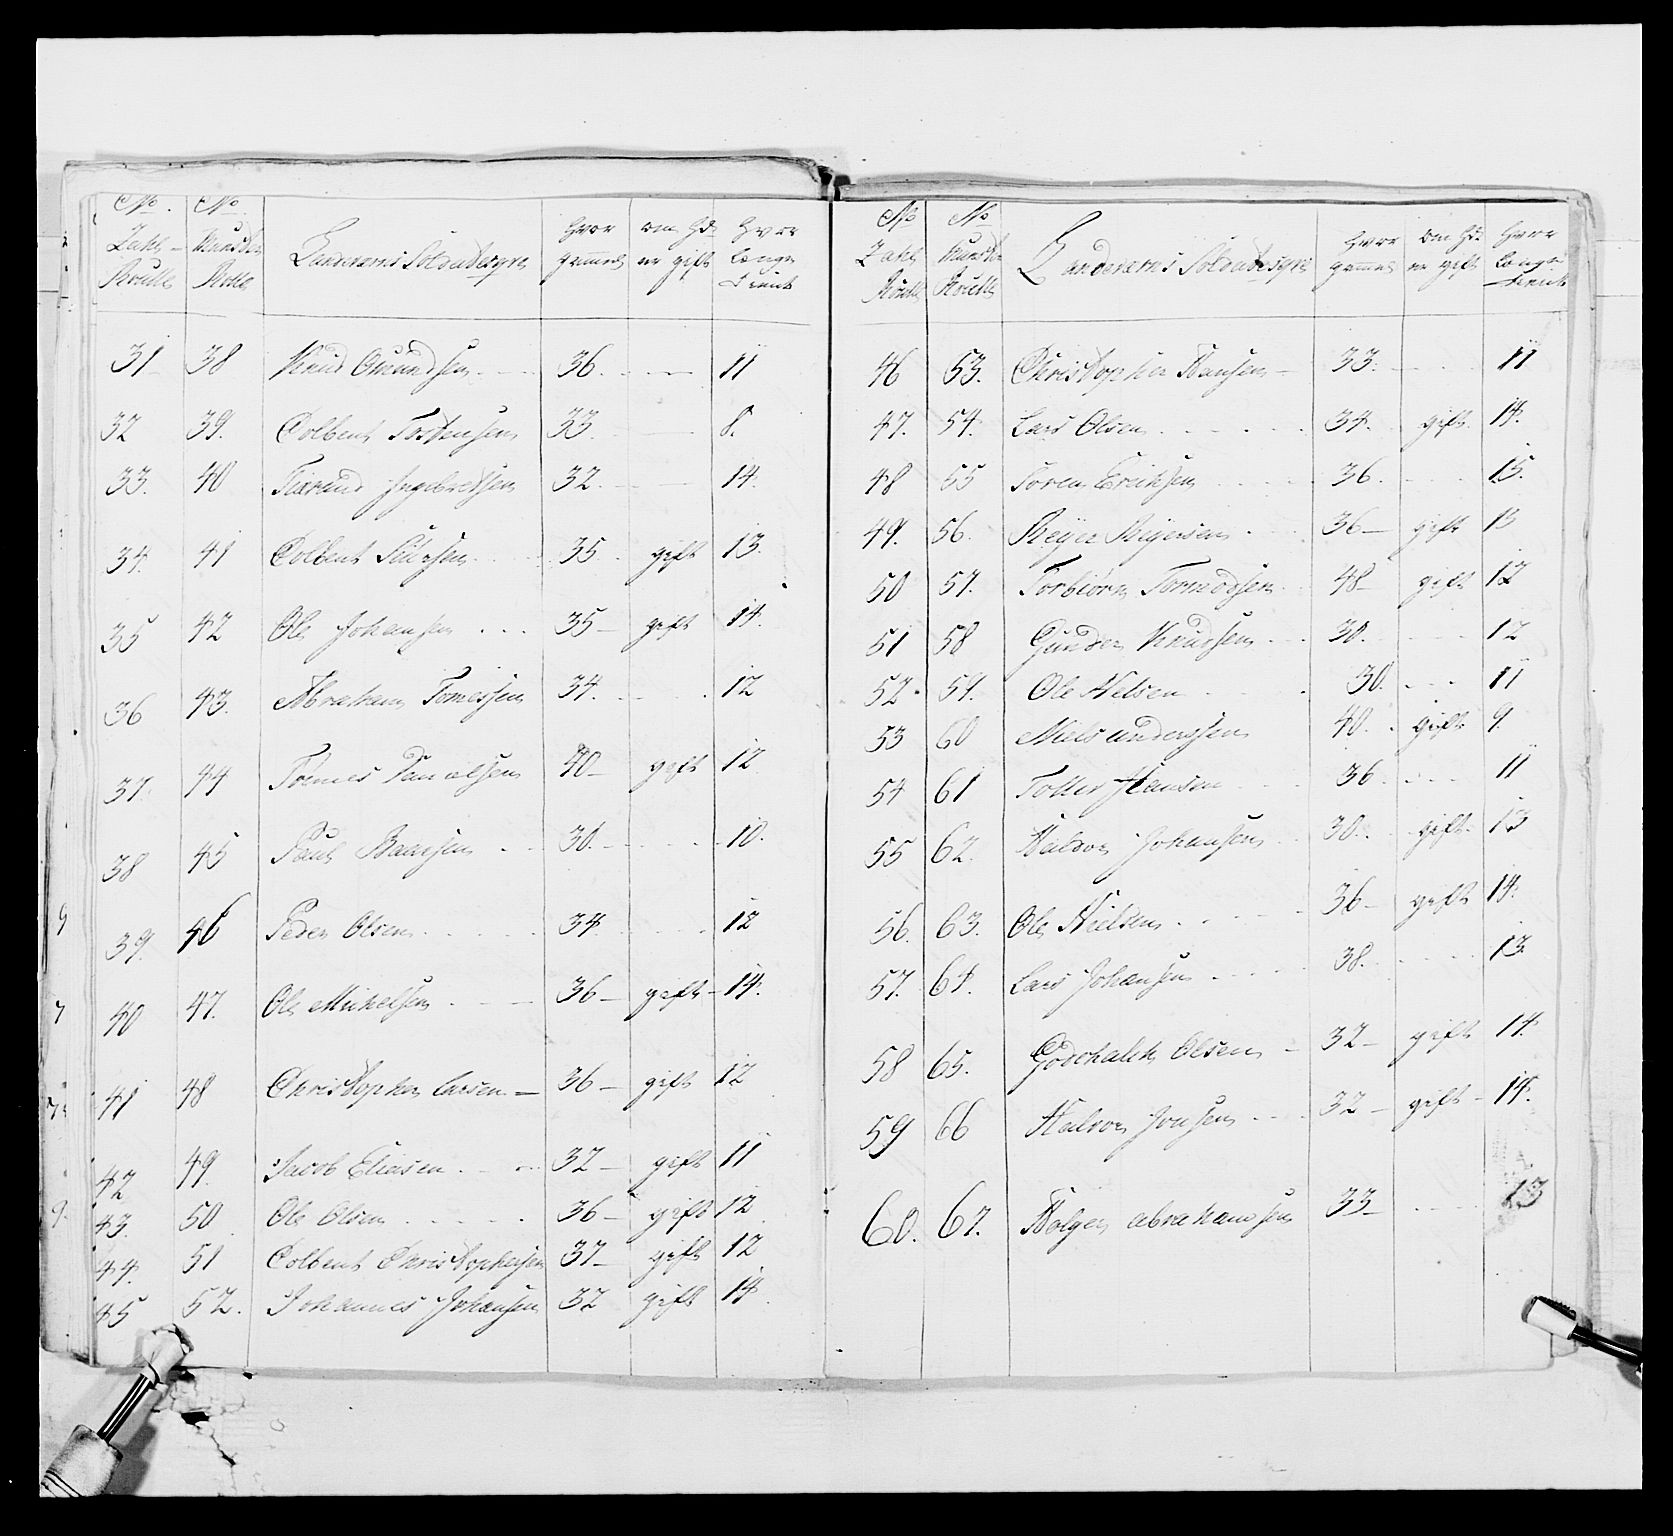 No. No. Landeværns Soldadesgre Hvor om Hd: Hvor
Zahl- Munster gammel er gift længe
Roulle Rolle tient
31 38 Knud Omundsen 36. 11
32 39. Colbent Torstensen 33. 8.
33. 40 Taxrald Ingebretsen 32. 14.
34. 41 Colbent Siursen 35. gift 13.
35 42 Ole Johansen 35- gift 14.
36 43. Abraham Tomessen 34. 12
37. 44 Tomes Danielsen 40- gift 12
38 45 Paul Baarsen 30. 10.
39. 46 Peder Olsen 34 12
40 47. Ole Mickelsen 36- gift- 14.
41 48 Christopher Larsen 36- gift 12
42 49. Jacob Eliasen 32- gift 11
43. 50 Ole Olsen 36- gift 12
44. 51 Colbent Christophersen 37- gift 12
45 52. Johannes Johansen 32 gift 14
No No Landeværns Soldadesgre Hvor om Hd: Hvor
Zahl Munster gammel er gift længe
Roulle Roulle tient
46 53. Christopher Hansen 33. 11
47. 54. Lars Olsen 34. gift 14.
48 55 Søren Erichsen 36. 15.
49. 56. Reyer Reyersen 36- gift 13
50 57. Torbiørn Tormodsen 48- gift 12
51 58 Gunder Knudsen 30. 12
52. 59. Ole Nelsen 30. 11
53 60 Niels anderssen 40. gift 9.
54 61 Tollev Hansen 36. 11
55 62. Halvor Johansen 30. gift 13
56. 63. Ole Nielsen 36- gift 14.
57. 64. Lars Johansen 38. 13.
58 65. Godschalck Olsen 32- gift 14.
59 66 Halvor Jonsen 32- gift- 14.
60. 67. Holger abrahamsen 33- 13